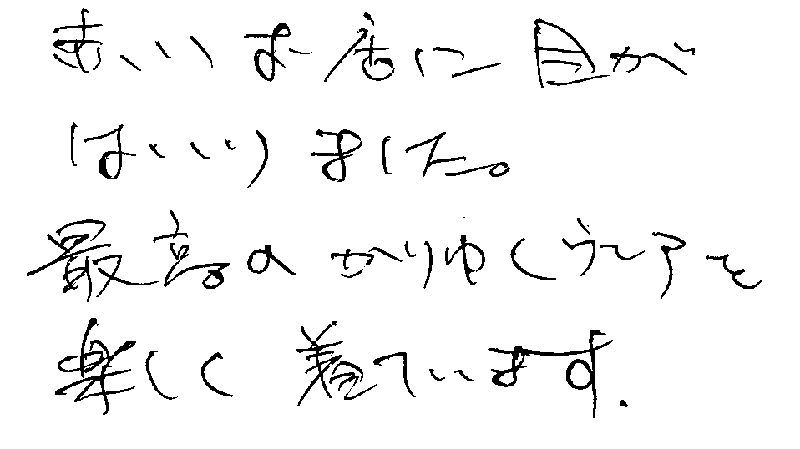 お店に目が
はいりました。
最高のかりゆしウェアを
楽しく着ています.